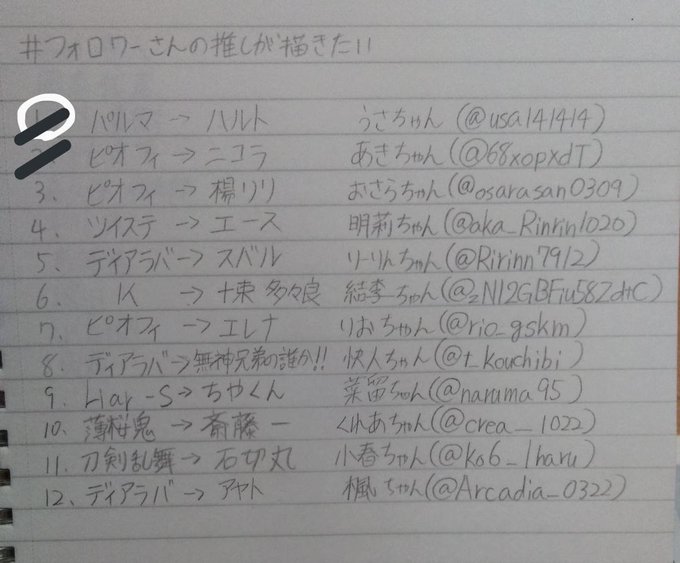 #フォロワーさんの推しが描きたい
1. パルマ → ハルト うさちゃん (@usa141414)
2. ピオフィ → ニコラ あきちゃん (@68xopxdT)
3. ピオフィ → 楊リリ おさらちゃん (@osarasan0309)
4. ツイステ → エース 明莉ちゃん (@aka_Rinrin1020)
5. ディアラバ → スバル りーりんちゃん (@Ririnn7912)
6. K → 十束 多々良 結季ちゃん (@zN12GBFiu58ZdtC)
7. ピオフィ → エレナ りおちゃん (@rio_gskm)
8. ディアラバ → 無神兄弟の誰か!! 快人ちゃん (@t_kouchibi)
9. Liar-S → ちやくん 菜留ちゃん (@naruma95)
10. 薄桜鬼 → 斎藤 一 くれあちゃん (@crea__1022)
11. 刀剣乱舞 → 石切丸 小春ちゃん (@ko6_1haru)
12. ディアラバ → アヤト 楓ちゃん (@Arcadia_0322)